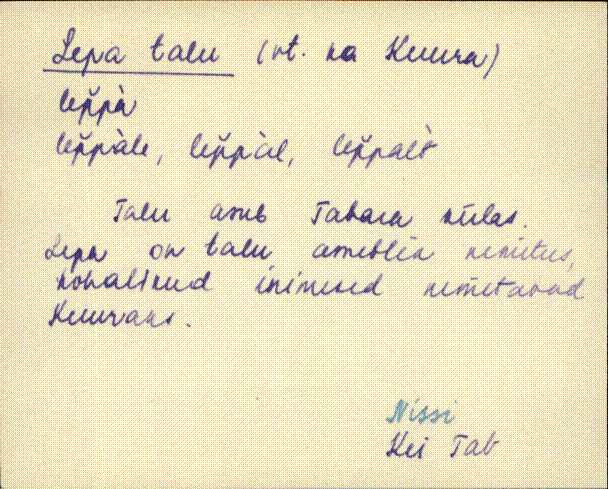 Lepa talu (vt. ka Kuura)
lep̆pà
lep̆pàle, lep̆pàl, lep̆palt̀
Talu asub Tabara külas.
Lepa on talu ametlik nimetus,
kohalikud inimesed nimetavad
Kuuraks.
Nissi
Kei Tab